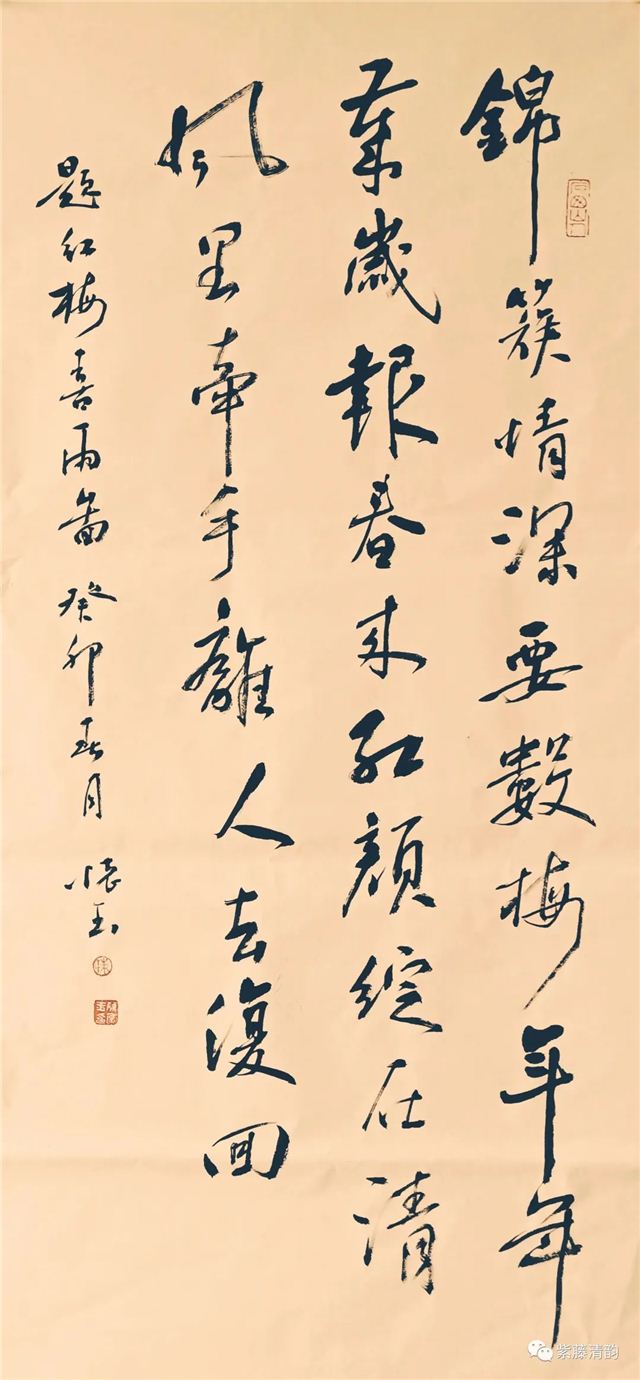 錦簇情深要數梅年年
歲歲報春来紅顔綻在清
風里牽手離人去復回
題紅梅喜雨圖 癸卯春月 懷玉
紫藤清韵